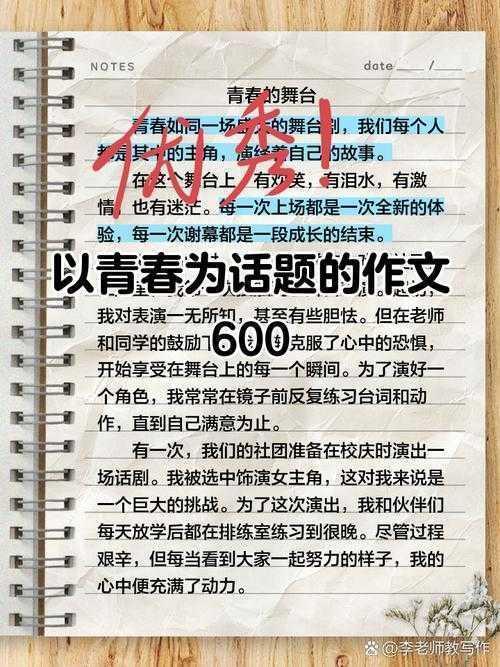 NOTES
date
/
青春的舞台
优秀!
青春如同一场盛大的舞台剧,我们每个人
都是其中的主角,演绎着自己的故事。
在这个舞台上,有欢笑,有泪水,有激
情,也有迷茫。每一次上场都是一次全新的体
验,每一次谢幕都是一段成长的结束。
以青春为话题的作文
600
我对表演一无所知,甚至有些胆怯。但在老师
和同学的鼓励下,克服了心中的恐惧,
开始享受在舞台上的每一个瞬间。为了演好一
个角色,我常常在镜子前反复练习台词和动
作,直到自己满意为止。
有一次,我们的社团准备在校庆时演出一
场话剧。我被选中饰演女主角,这对我来说是
一个巨大的挑战。为了这次演出,我和伙伴们
每天放学后都在排练室练习到很晚。尽管过程
艰辛,但每当看到大家一起努力的样子,我的
心中便充满了动力。
李老师教写作